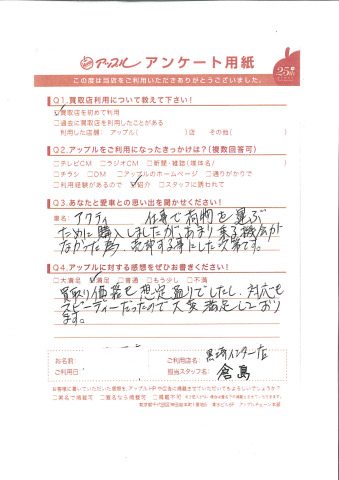 アップル アンケート用紙
25th
この度は当店をご利用いただきありがとうございました。
Q1.買取店利用について教えて下さい!
☑買取店を初めて利用
□過去に買取店を利用したことがある
利用した店舗: アップル( )店 その他( )
Q2.アップルをご利用になったきっかけは?(複数回答可)
□テレビCM □ラジオCM □新聞・雑誌(媒体名/ )
□チラシ □DM □アップルのホームページ □通りがかりで
□利用経験があるので ☑紹介 □スタッフに誘われて
Q3.あなたと愛車との思い出を聞かせください!
車名: アクティ 仕事で荷物を運ぶ
ために購入しましたが、あまり乗る機会が
なかった為 売却する事にした次第です。
Q4.アップルに対する感想をぜひお書きください!
□大満足 ☑満足 □普通 □もう少し □不満
買取り価格も想定通りでしたし、対応も
スピーディーだったので大変満足しており
ます。
お名前:
ご利用日:
ご利用店名: 黒埼インター店
担当スタッフ名: 倉島
お客様に書いていただいた感想を、アップルHPや広告に掲載させていただいてもよろしいでしょうか?
□実名で掲載可 □匿名なら掲載可 □掲載不可